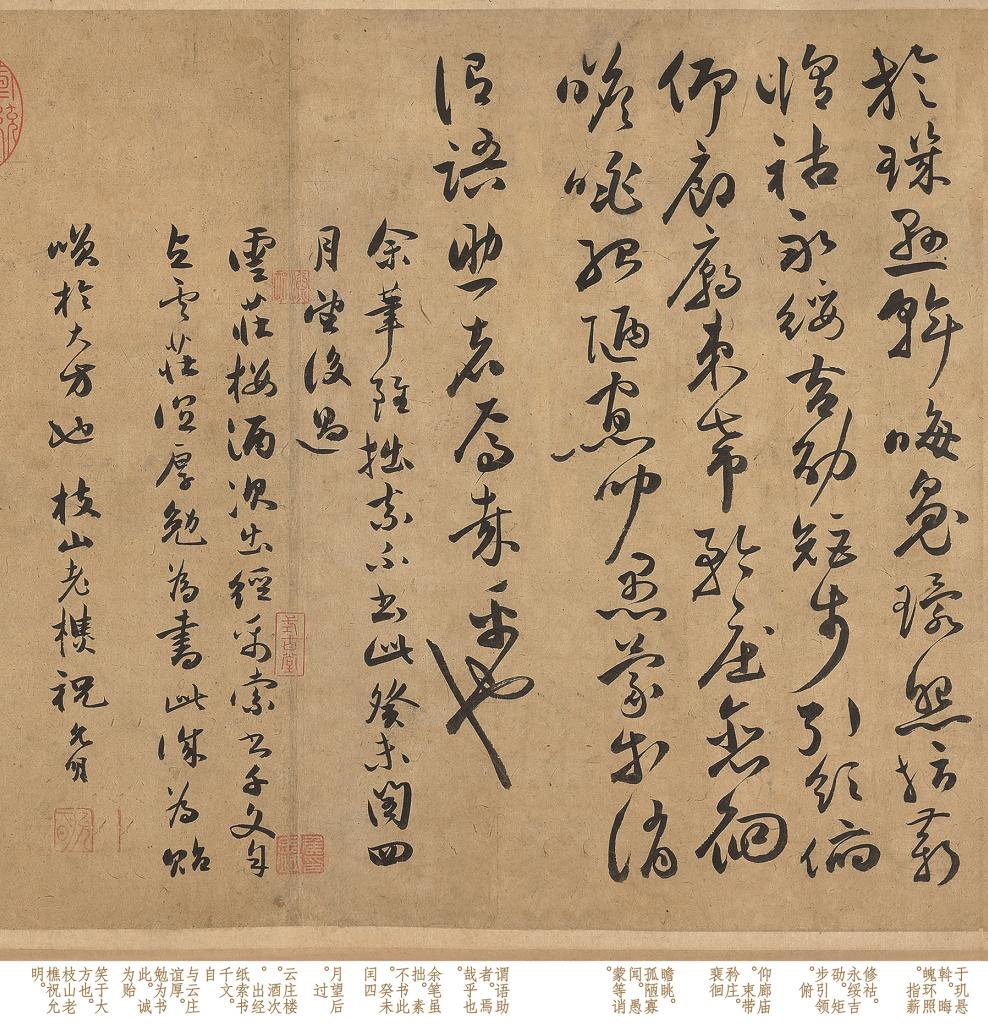 於璣懸斡晦魄環照指薪
修祜永綏吉劭矩步引領俯
仰廊廟束帶矜莊徊
瞻眺孤陋寡聞愚蒙等誚
謂語助者焉哉乎也
余筆雖拙素不書此癸未閏四
月望後過
雲莊樓酒次出經紙索書千文自
與雲莊誼厚勉為書此誠為貽
笑於大方也枝山老樵祝允明
式古堂
于玑悬
斡。晦
魄环照
。指薪
修祜。
永绥吉
劭。矩
步引领
俯
仰廊庙
。束带
矜庄。
裵徊
瞻眺。
孤陋寡
闻。愚
蒙等诮
谓语助
者。焉
哉乎也
。
余笔虽
拙。素
不书此
。癸未
闰四
月望后
。过
云庄楼
。酒次
。出经
纸索书
千文。
自
与云庄
谊厚。
勉为书
此。诚
为贻
笑于大
方也。
枝山老
樵祝允
明。